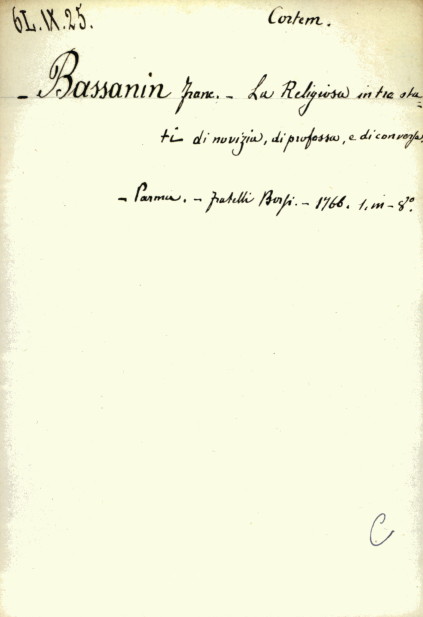 6L.IX.25.
Cortem.
- Bassanin Franc. - La Religiosa in tre sta=
ti di novizia, di professa, e di conversa.
- Parma. - Fratelli Borsi. - 1766. 1. in - 8°.
C